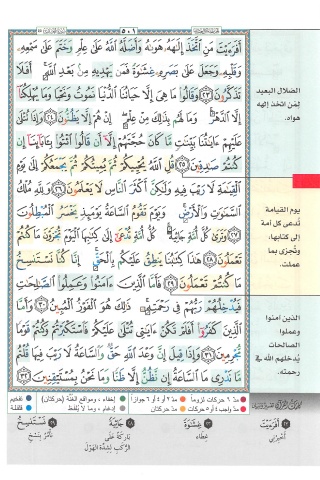 ٥٠١
أَفَرَءَيْتَ مَنِ ٱتَّخَذَ إِلَٰهَهُۥ هَوَىٰهُ وَأَضَلَّهُ ٱللَّهُ عَلَىٰ عِلْمٍ وَخَتَمَ عَلَىٰ سَمْعِهِۦ
وَقَلْبِهِۦ وَجَعَلَ عَلَىٰ بَصَرِهِۦ غِشَٰوَةً فَمَن يَهْدِيهِ مِنۢ بَعْدِ ٱللَّهِ ۚ أَفَلَا
تَذَكَّرُونَ ٢٣ وَقَالُوا۟ مَا هِىَ إِلَّا حَيَاتُنَا ٱلدُّنْيَا نَمُوتُ وَنَحْيَا وَمَا يُهْلِكُنَآ
إِلَّا ٱلدَّهْرُ ۚ وَمَا لَهُم بِذَٰلِكَ مِنْ عِلْمٍ ۖ إِنْ هُمْ إِلَّا يَظُنُّونَ ٢٤ وَإِذَا تُتْلَىٰ
عَلَيْهِمْ ءَايَٰتُنَا بَيِّنَٰتٍ مَّا كَانَ حُجَّتَهُمْ إِلَّآ أَن قَالُوا۟ ٱئْتُوا۟ بِـَٔابَآئِنَآ إِن
كُنتُمْ صَٰدِقِينَ ٢٥ قُلِ ٱللَّهُ يُحْيِيكُمْ ثُمَّ يُمِيتُكُمْ ثُمَّ يَجْمَعُكُمْ إِلَىٰ يَوْمِ
ٱلْقِيَٰمَةِ لَا رَيْبَ فِيهِ وَلَٰكِنَّ أَكْثَرَ ٱلنَّاسِ لَا يَعْلَمُونَ ٢٦ وَلِلَّهِ مُلْكُ
ٱلسَّمَٰوَٰتِ وَٱلْأَرْضِ ۚ وَيَوْمَ تَقُومُ ٱلسَّاعَةُ يَوْمَئِذٍ يَخْسَرُ ٱلْمُبْطِلُونَ
٢٧ وَتَرَىٰ كُلَّ أُمَّةٍ جَاثِيَةً ۚ كُلُّ أُمَّةٍ تُدْعَىٰٓ إِلَىٰ كِتَٰبِهَا ٱلْيَوْمَ تُجْزَوْنَ مَا كُنتُمْ
تَعْمَلُونَ ٢٨ هَٰذَا كِتَٰبُنَا يَنطِقُ عَلَيْكُم بِٱلْحَقِّ ۚ إِنَّا كُنَّا نَسْتَنسِخُ
مَا كُنتُمْ تَعْمَلُونَ ٢٩ فَأَمَّا ٱلَّذِينَ ءَامَنُوا۟ وَعَمِلُوا۟ ٱلصَّٰلِحَٰتِ
فَيُدْخِلُهُمْ رَبُّهُمْ فِى رَحْمَتِهِۦ ۚ ذَٰلِكَ هُوَ ٱلْفَوْزُ ٱلْمُبِينُ ٣٠ وَأَمَّا
ٱلَّذِينَ كَفَرُوٓا۟ أَفَلَمْ تَكُنْ ءَايَٰتِى تُتْلَىٰ عَلَيْكُمْ فَٱسْتَكْبَرْتُمْ وَكُنتُمْ قَوْمًا
مُّجْرِمِينَ ٣١ وَإِذَا قِيلَ إِنَّ وَعْدَ ٱللَّهِ حَقٌّ وَٱلسَّاعَةُ لَا رَيْبَ فِيهَا قُلْتُم
مَّا نَدْرِى مَا ٱلسَّاعَةُ إِن نَّظُنُّ إِلَّا ظَنًّا وَمَا نَحْنُ بِمُسْتَيْقِنِينَ ٣٢
الضلال البعيد
لمَن اتخذ إلهه
هواه.
يوم القيامة
تُدعى كل أمة
إلى كتابها،
وتُجزى بما
عملت.
الذين آمنوا
وعملوا
الصالحات
يُدخلهم الله في
رحمته.
مدّ ٦ حركات لزوماً مدّ ٢ أو ٤ أو ٦ جوازاً إخفاء، ومواقع الغُنَّة (حركتان) تفخيم
مدّ واجب ٤ أو ٥ حركات مدّ حركتان إدغام، وما لا يُلفظ قلقلة
٢٣ أَفَرَءَيْتَ
أخْبِرْني
٢٣ غِشَٰوَةً
غِطاء
٢٨ جَاثِيَةً
بَارِكَةً عَلَى
الرُّكَبِ لِشِدَّةِ الهَوْلِ
٢٩ نَسْتَنسِخُ
نَأْمُرُ بِنَسْخِ